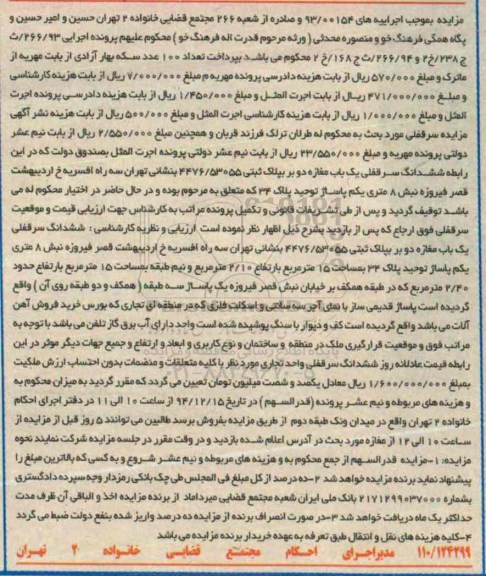 مزایده بموجب اجراییه های ۹۳/۰۰۱۵۴ و صادره از شعبه ۲۶۶ مجتمع قضایی خانواده ۲ تهران حسین و امیر حسین و
پگاه همگی فرهنگ خو و منصوره محدثی (ورثه مرحوم قدرت اله فرهنگ خو) محکوم علیهم پرونده اجرایی ۲۶۶/۹۳/ث
ج ۲۳۸/خ۲ و ۲۶۶/۹۴/ث ج ۱۶۸/خ ۲ محکوم می باشد بپرداخت تعداد ۱۰۰ عدد سکه بهار آزادی از بابت مهریه از
ماترک و مبلغ ۵۷۰/۰۰۰ ریال از بابت هزینه دادرسی پرونده مهریه م مبلغ ۷/۰۰۰/۰۰۰ ریال از بابت هزینه کارشناسی
و مبلغ ۴۷۱/۰۰۰/۰۰۰ ریال از بابت اجرت المثل و مبلغ ۱/۴۵۰/۰۰۰ ریال از بابت هزینه دادرسی پرونده اجرت
المثل و مبلغ ۱/۰۰۰/۰۰۰ ریال از بابت هزینه کارشناسی اجرت المثل و مبلغ ۵۰۰/۰۰۰ ریال از بابت هزینه نشر آگهی
مزایده سرقفلی مورد بحث به محکوم له طرلان ترلک فرزند قربان و همچنین مبلغ ۲/۵۵۰/۰۰۰ ریال از بابت نیم عشر
دولتی پرونده مهریه و مبلغ ۲۳/۵۵۰/۰۰۰ ریال از بابت نیم عشر دولتی پرونده اجرت المثل بصندوق دولت که در این
رابطه ششدانگ سرقفلی یک باب مغازه دو بر بپلاک ثبتی ۴۴۷۶/۵۳۰۵۵ بنشانی تهران سه راه افسریه خ اردیبهشت
قصر فیروزه نبش ۸ متری یکم پاساژ توحید پلاک ۳۴ که متعلق به مرحوم بوده و در حال حاضر در اختیار محکوم له می
باشد توقیف گردید و پس از طی تشریفات قانونی و تکمیل پرونده مراتب به کارشناس جهت ارزیابی قیمت و موقعیت
سرقفلی فوق ارجاع که پس از بازدید بشرح ذیل اظهار نظر نموده است ارزیابی و نظریه کارشناسی: ششدانگ سرقفلی
یک باب مغازه دو بر بپلاک ثبتی ۴۴۷۶/۵۳۰۵۵ بنشانی تهران سه راه افسریه خ اردیبهشت قصر فیروزه نبش ۸ متری
یکم پاساژ توحید پلاک ۳۴ بمساحت ۱۵ مترمربع بارتفاع ۲/۱۰ مترمربع و نیم طبقه بمساحت ۱۵ مترمربع بارتفاع حدود
۲/۴۰ مترمربع که در طبقه همکف بر خیابان نبش قصر فیروزه یک پاساژ سه طبقه (همکف و دو طبقه روی آن) واقع
گردیده است پاساژ قدیمی ساز با نمای آجر سه سانتی و اسکلت فلزی که در منطقه ای تجاری که بورس خرید فروش آهن
آلات می باشد واقع گردیده است کف و دیوار با سنگ پوشیده شده است واحد دارای آب برق گاز تلفن می باشد با توجه به
مراتب فوق و موقعیت قرارگیری ملک در منطقه و ساختمان و نوع کاربری و ابعاد و ارتفاع و جمیع جهات دیگر موثر در این
رابطه قیمت عادلانه روز ششدانگ سرقفلی واحد تجاری مورد نظر با کلیه متعلقات و منضمات بدون احتساب ارزش ملکیت
بمبلغ ۱/۶۰۰/۰۰۰/۰۰۰ ریال معادل یکصد و شصت میلیون تومان تعیین می گردد که مقرر گردید به میزان محکوم به
و هزینه های مربوطه و نیم عشر پرونده (قدرالسهم) در تاریخ ۹۴/۱۲/۱۵ از ساعت ۱۰ الی ۱۱ در دفتر اجرای احکام
خانواده ۲ تهران واقع در میدان ونک طبقه دوم از طریق مزایده بفروش برسد طالبین می توانند ۵ روز قبل از مزایده از
ساعت ۱۰ الی ۱۲ از مغازه مورد بحث در آدرس اعلام شده بازدید و در وقت مقرر در جلسه مزایده شرکت نمایند نحوه
مزایده: ۱-مزایده قدرالسهم از جمع محکوم به و هزینه های مربوطه و نیم عشر شروع و به کسی که بالاترین مبلغ را
پیشنهاد نماید برنده مزایده خواهد شد ۲-ده درصد از کل مبلغ فی المجلس طی چک بانکی رمزدار وجه سپرده دادگستری
بشماره ۲۱۷۱۲۹۹۰۳۷۰۰۰ بانک ملی ایران شعبه مجتمع قضایی میرداماد از برنده مزایده اخذ و الباقی آن ظرف مدت
حداکثر یک ماه دریافت خواهد شد ۳-در صورت انصراف برنده از مزایده ده درصد واریز شده بنفع دولت ضبط می گردد
۴-کلیه هزینه های نقل و انتقال طبق تعرفه به عهده خریدار برنده مزایده می باشد
۱۱۰/۱۲۴۲۹۹ مدیر اجرای احکام مجتمع قضایی خانواده ۲ تهران